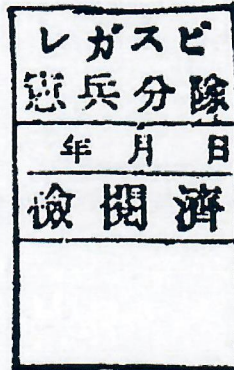 レガスピ
憲兵分隊
年月日
検閲済